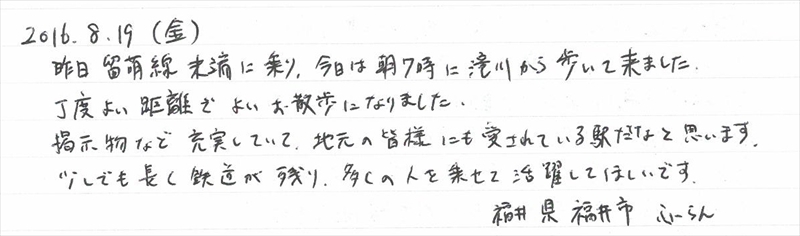 2016.8.19 (金)
昨日 留萌線 末端に乗り、今日は朝7時に滝川から歩いて来ました。
丁度よい距離でよいお散歩になりました。
掲示物など充実していて、地元の皆様にも愛されている駅だなと思います。
少しでも長く鉄道が残り、多くの人を乗せて活躍してほしいです。
福井県福井市 ふーらん